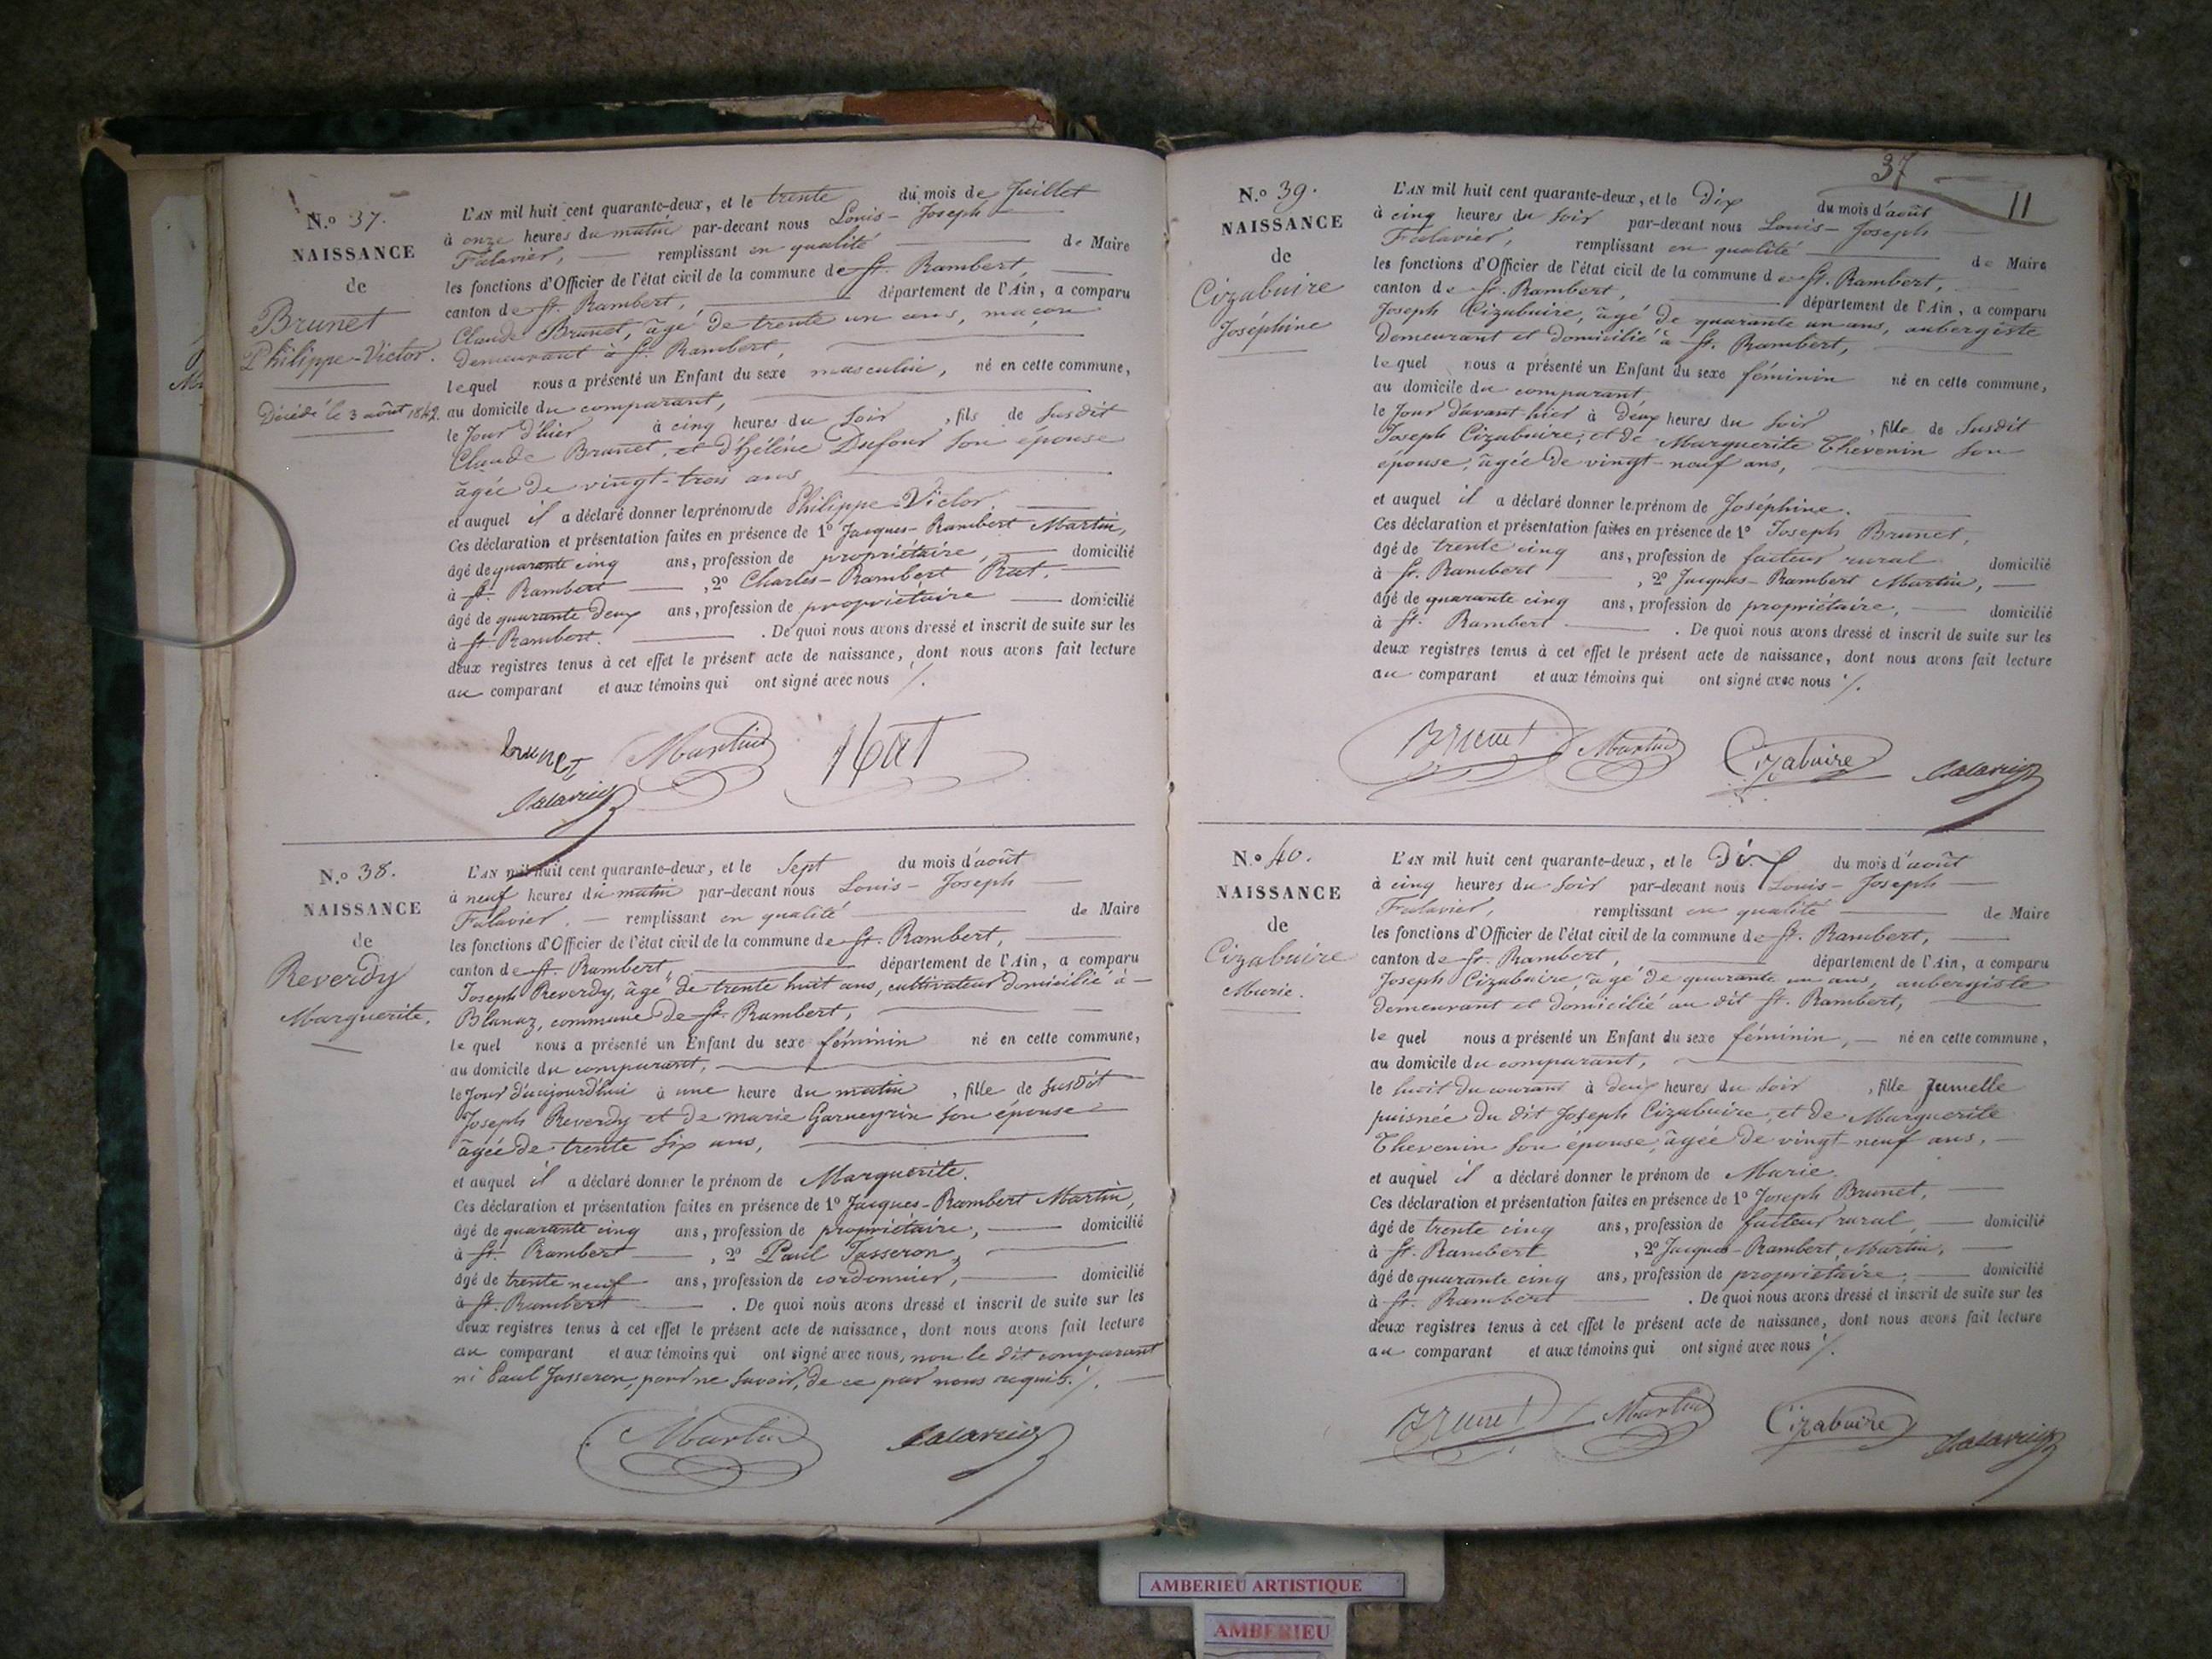 N.o 37.
NAISSANCE
de
Brunet
Philippe-Victor.
Décédé le 3 août 1842.
L'AN mil huit cent quarante-deux, et le trente du mois de Juillet
à onze heures du matin par-devant nous Louis-Joseph
Falavier, remplissant en qualité de Maire
les fonctions d'Officier de l'état civil de la commune de St. Rambert,
canton de St. Rambert, département de l'Ain, a comparu
Claude Brunet, âgé de trente un ans, maçon
demeurant à St. Rambert,
lequel nous a présenté un Enfant du sexe masculin, né en cette commune,
au domicile du comparant,
le Jour d'hier à cinq heures du soir, fils de susdit
Claude Brunet, et d'hélène Dufour son épouse
âgée de vingt-trois ans
et auquel il a déclaré donner les prénoms de Philippe-Victor.
Ces déclaration et présentation faites en présence de 1o Jacques-Rambert Martin,
âgé de quarante cinq ans, profession de propriétaire, domicilié
à St. Rambert, 2o Charles-Rambert Rat,
âgé de quarante deux ans, profession de propriétaire domicilié
à St. Rambert. De quoi nous avons dressé et inscrit de suite sur les
deux registres tenus à cet effet le présent acte de naissance, dont nous avons fait lecture
au comparant et aux témoins qui ont signé avec nous ./.
brunet Martin Rat
Falavier
N.o 38.
NAISSANCE
de
Reverdy
Marguerite.
L'AN mil huit cent quarante-deux, et le Sept du mois d'août
à neuf heures du matin par-devant nous Louis-Joseph
Falavier, remplissant en qualité de Maire
les fonctions d'Officier de l'état civil de la commune de St. Rambert,
canton de St. Rambert, département de l'Ain, a comparu
Joseph Reverdy, âgé de trente huit ans, cultivateur domicilié à
Blanaz, commune de St. Rambert,
le quel nous a présenté un Enfant du sexe féminin né en cette commune,
au domicile du comparant,
le Jour d'aujourd'hui à une heure du matin, fille de susdit
Joseph Reverdy et de marie Garneyrin son épouse
âgée de trente six ans,
et auquel il a déclaré donner le prénom de Marguerite.
Ces déclaration et présentation faites en présence de 1o Jacques-Rambert Martin,
âgé de quarante cinq ans, profession de propriétaire, domicilié
à St. Rambert, 2o Paul Jasseron,
âgé de trente neuf ans, profession de cordonnier, domicilié
à St. Rambert. De quoi nous avons dressé et inscrit de suite sur les
deux registres tenus à cet effet le présent acte de naissance, dont nous avons fait lecture
au comparant et aux témoins qui ont signé avec nous, non le dit comparant
ni Paul Jasseron, pour ne savoir, de ce par nous requis./.
Martin Falavier
37
11
N.o 39.
NAISSANCE
de
Cizabuire
Joséphine
L'AN mil huit cent quarante-deux, et le Dix du mois d'août
à cinq heures du soir par-devant nous Louis-Joseph
Falavier, remplissant en qualité de Maire
les fonctions d'Officier de l'état civil de la commune de St. Rambert,
canton de St. Rambert, département de l'Ain, a comparu
Joseph Cizabuire, âgé de quarante un ans, aubergiste
demeurant et domicilié à St. Rambert,
le quel nous a présenté un Enfant du sexe féminin né en cette commune,
au domicile du comparant
le Jour d'avant-hier à deux heures du soir, fille de susdit
Joseph Cizabuire, et de Marguerite Thevenin son
épouse, âgée de vingt-neuf ans,
et auquel il a déclaré donner le prénom de Joséphine.
Ces déclaration et présentation faites en présence de 1o Joseph Brunet,
âgé de trente cinq ans, profession de facteur rural domicilié
à St. Rambert, 2o Jacques-Rambert Martin,
âgé de quarante cinq ans, profession de propriétaire, domicilié
à St. Rambert. De quoi nous avons dressé et inscrit de suite sur les
deux registres tenus à cet effet le présent acte de naissance, dont nous avons fait lecture
au comparant et aux témoins qui ont signé avec nous ./.
Brunet Martin Cizabuire Falavier
N.o 40.
NAISSANCE
de
Cizabuire
Marie.
L'AN mil huit cent quarante-deux, et le Dix du mois d'août
à cinq heures du soir par-devant nous Louis-Joseph
Falavier, remplissant en qualité de Maire
les fonctions d'Officier de l'état civil de la commune de St. Rambert,
canton de St. Rambert, département de l'Ain, a comparu
Joseph Cizabuire, âgé de quarante un ans, aubergiste
demeurant et domicilié au dit St. Rambert,
le quel nous a présenté un Enfant du sexe féminin, né en cette commune,
au domicile du comparant,
le huit du courant à deux heures du soir, fille Jumelle
puisnée du dit Joseph Cizabuire, et de Marguerite
Thevenin son épouse, âgée de vingt-neuf ans,
et auquel il a déclaré donner le prénom de Marie.
Ces déclaration et présentation faites en présence de 1o Joseph Brunet,
âgé de trente cinq ans, profession de facteur rural, domicilié
à St. Rambert, 2o Jacques-Rambert Martin,
âgé de quarante cinq ans, profession de propriétaire, domicilié
à St. Rambert. De quoi nous avons dressé et inscrit de suite sur les
deux registres tenus à cet effet le présent acte de naissance, dont nous avons fait lecture
au comparant et aux témoins qui ont signé avec nous ./.
Brunet Martin Cizabuire Falavier
AMBERIEU ARTISTIQUE
AMBERIEU